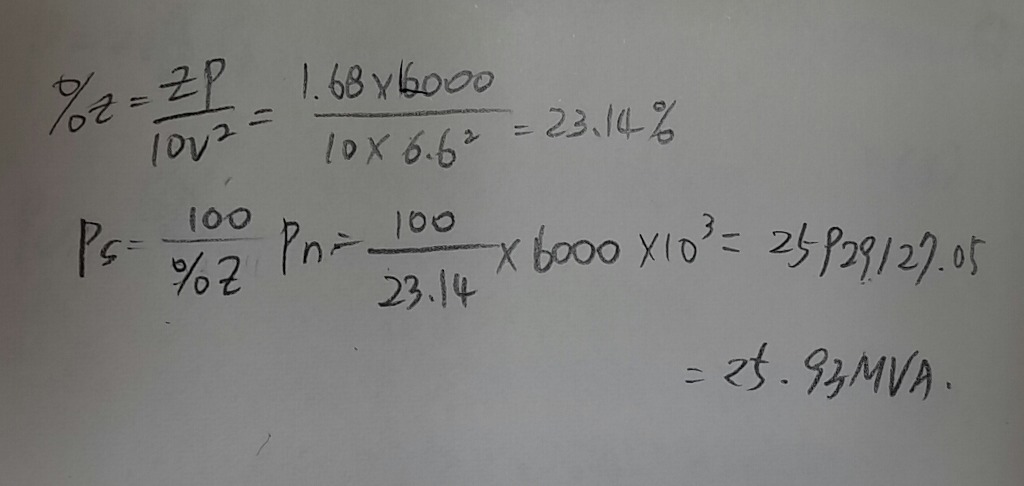 %z = ZP / 10V² = 1.68 × 6000 / 10 × 6.6² = 23.14%
Ps = 100 / %Z Pn = 100 / 23.14 × 6000 × 10³ = 25929127.05
= 25.93MVA.